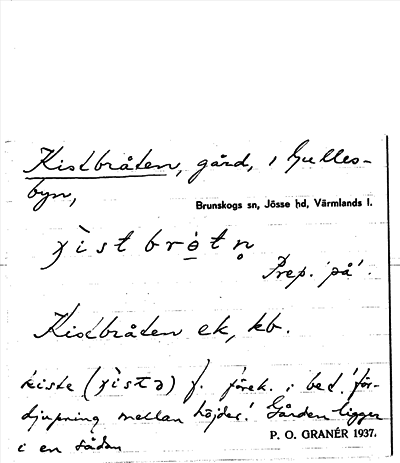 Kistbråten, gård, i Gulles-
byn,
Brunskogs sn, Jösse hd, Värmlands l.
χìstbrò̲tn̥
Prep. 'på'.
Kistbråten ek, kb.
kiste (χìstə) f. förek. i bet. 'för-
djupning mellan höjder'. Gården ligger
i en sådan
P. O. GRANÉR 1937.